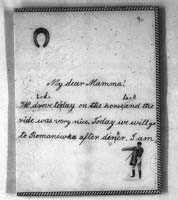 My dear Mamma!
rode back
We drove today on the horse and the
ride was very nice. Today we will go
to Romanівka after diner. I am